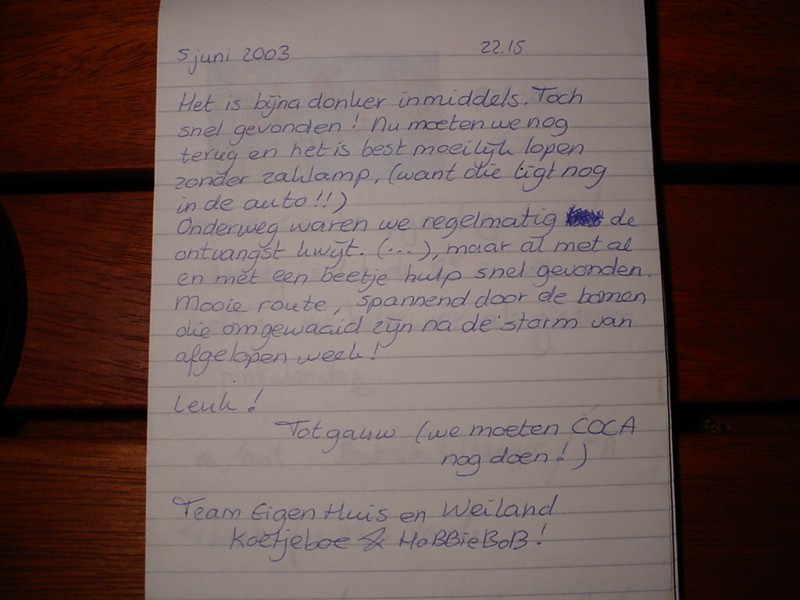 5 juni 2003 22.15
Het is bijna donker inmiddels. Toch
snel gevonden! Nu moeten we nog
terug en het is best moeilijk lopen
zonder zaklamp, (want die ligt nog
in de auto!!)
Onderweg waren we regelmatig de
ontvangst kwijt. (...), maar al met al
en met een beetje hulp snel gevonden.
Mooie route, spannend door de bomen
die omgewaaid zijn na de storm van
afgelopen week!
Leuk!
Tot gauw (we moeten COCA
nog doen!)
Team Eigen Huis en Weiland
Koetjeboe & HoBBieBoB!